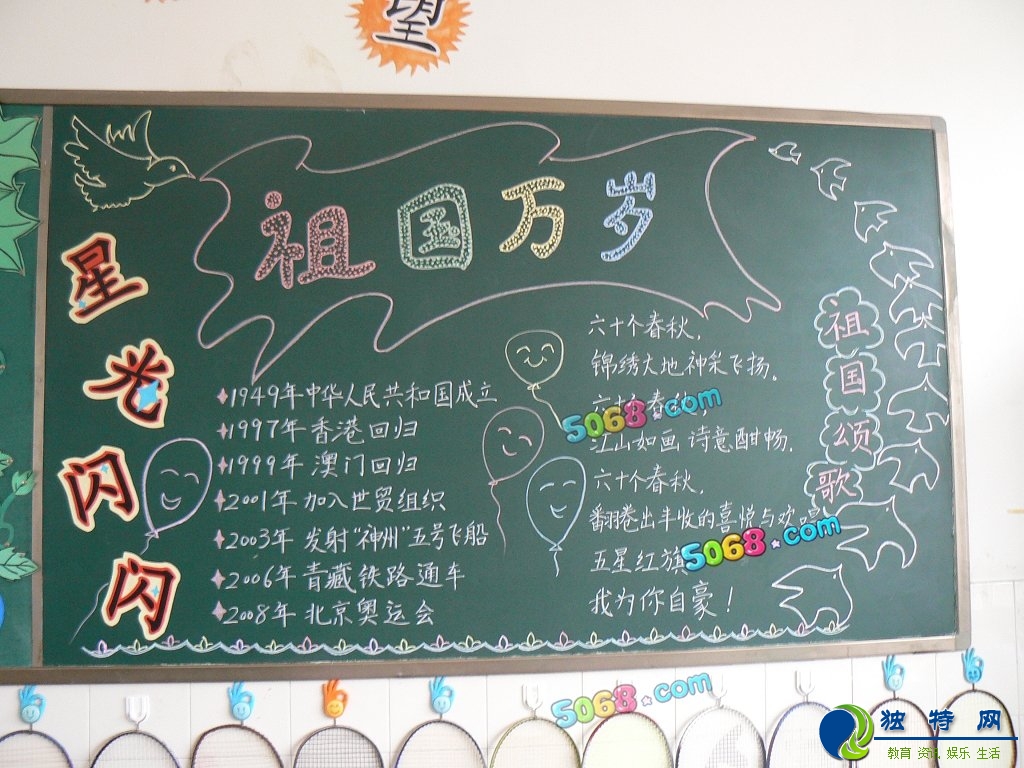 望
祖国万岁
星光闪闪
1949年中华人民共和国成立
1997年香港回归
1999年澳门回归
2001年加入世贸组织
2003年发射"神州"五号飞船
2006年青藏铁路通车
2008年北京奥运会
六十个春秋,
锦绣大地神彩飞扬。
六十个春秋,
江山如画诗意酣畅.
六十个春秋,
翻卷出丰收的喜悦与欢唱
五星红旗
我为你自豪!
祖国颂歌
5068.com
5068.com
5068.com
独特网
教育 资讯 娱乐 生活